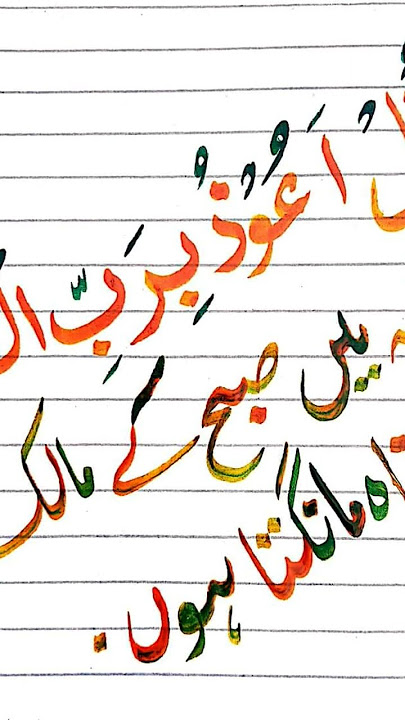 اَعُوْذُ بِرَبِّ ال
میں صبح کے مالک
اہ مانگتا ہوں۔